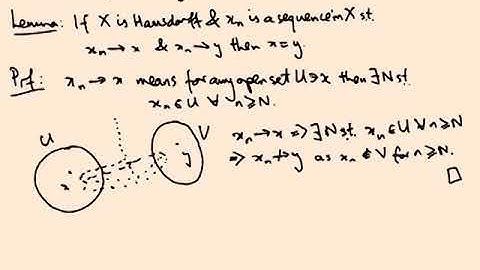 Lemma: If X is Hausdorff & xₙ is a sequence in X st.
xₙ → x & xₙ → y then x = y.
Prf: xₙ → x means for any open set U ∋ x then ∃ N st.
xₙ ∈ U ∀ n ≥ N.
U
V
x
y
xₙ → x => ∃ N st. xₙ ∈ U ∀ n ≥ N
=> xₙ ↛ y as xₙ ∉ V for n ≥ N.
□